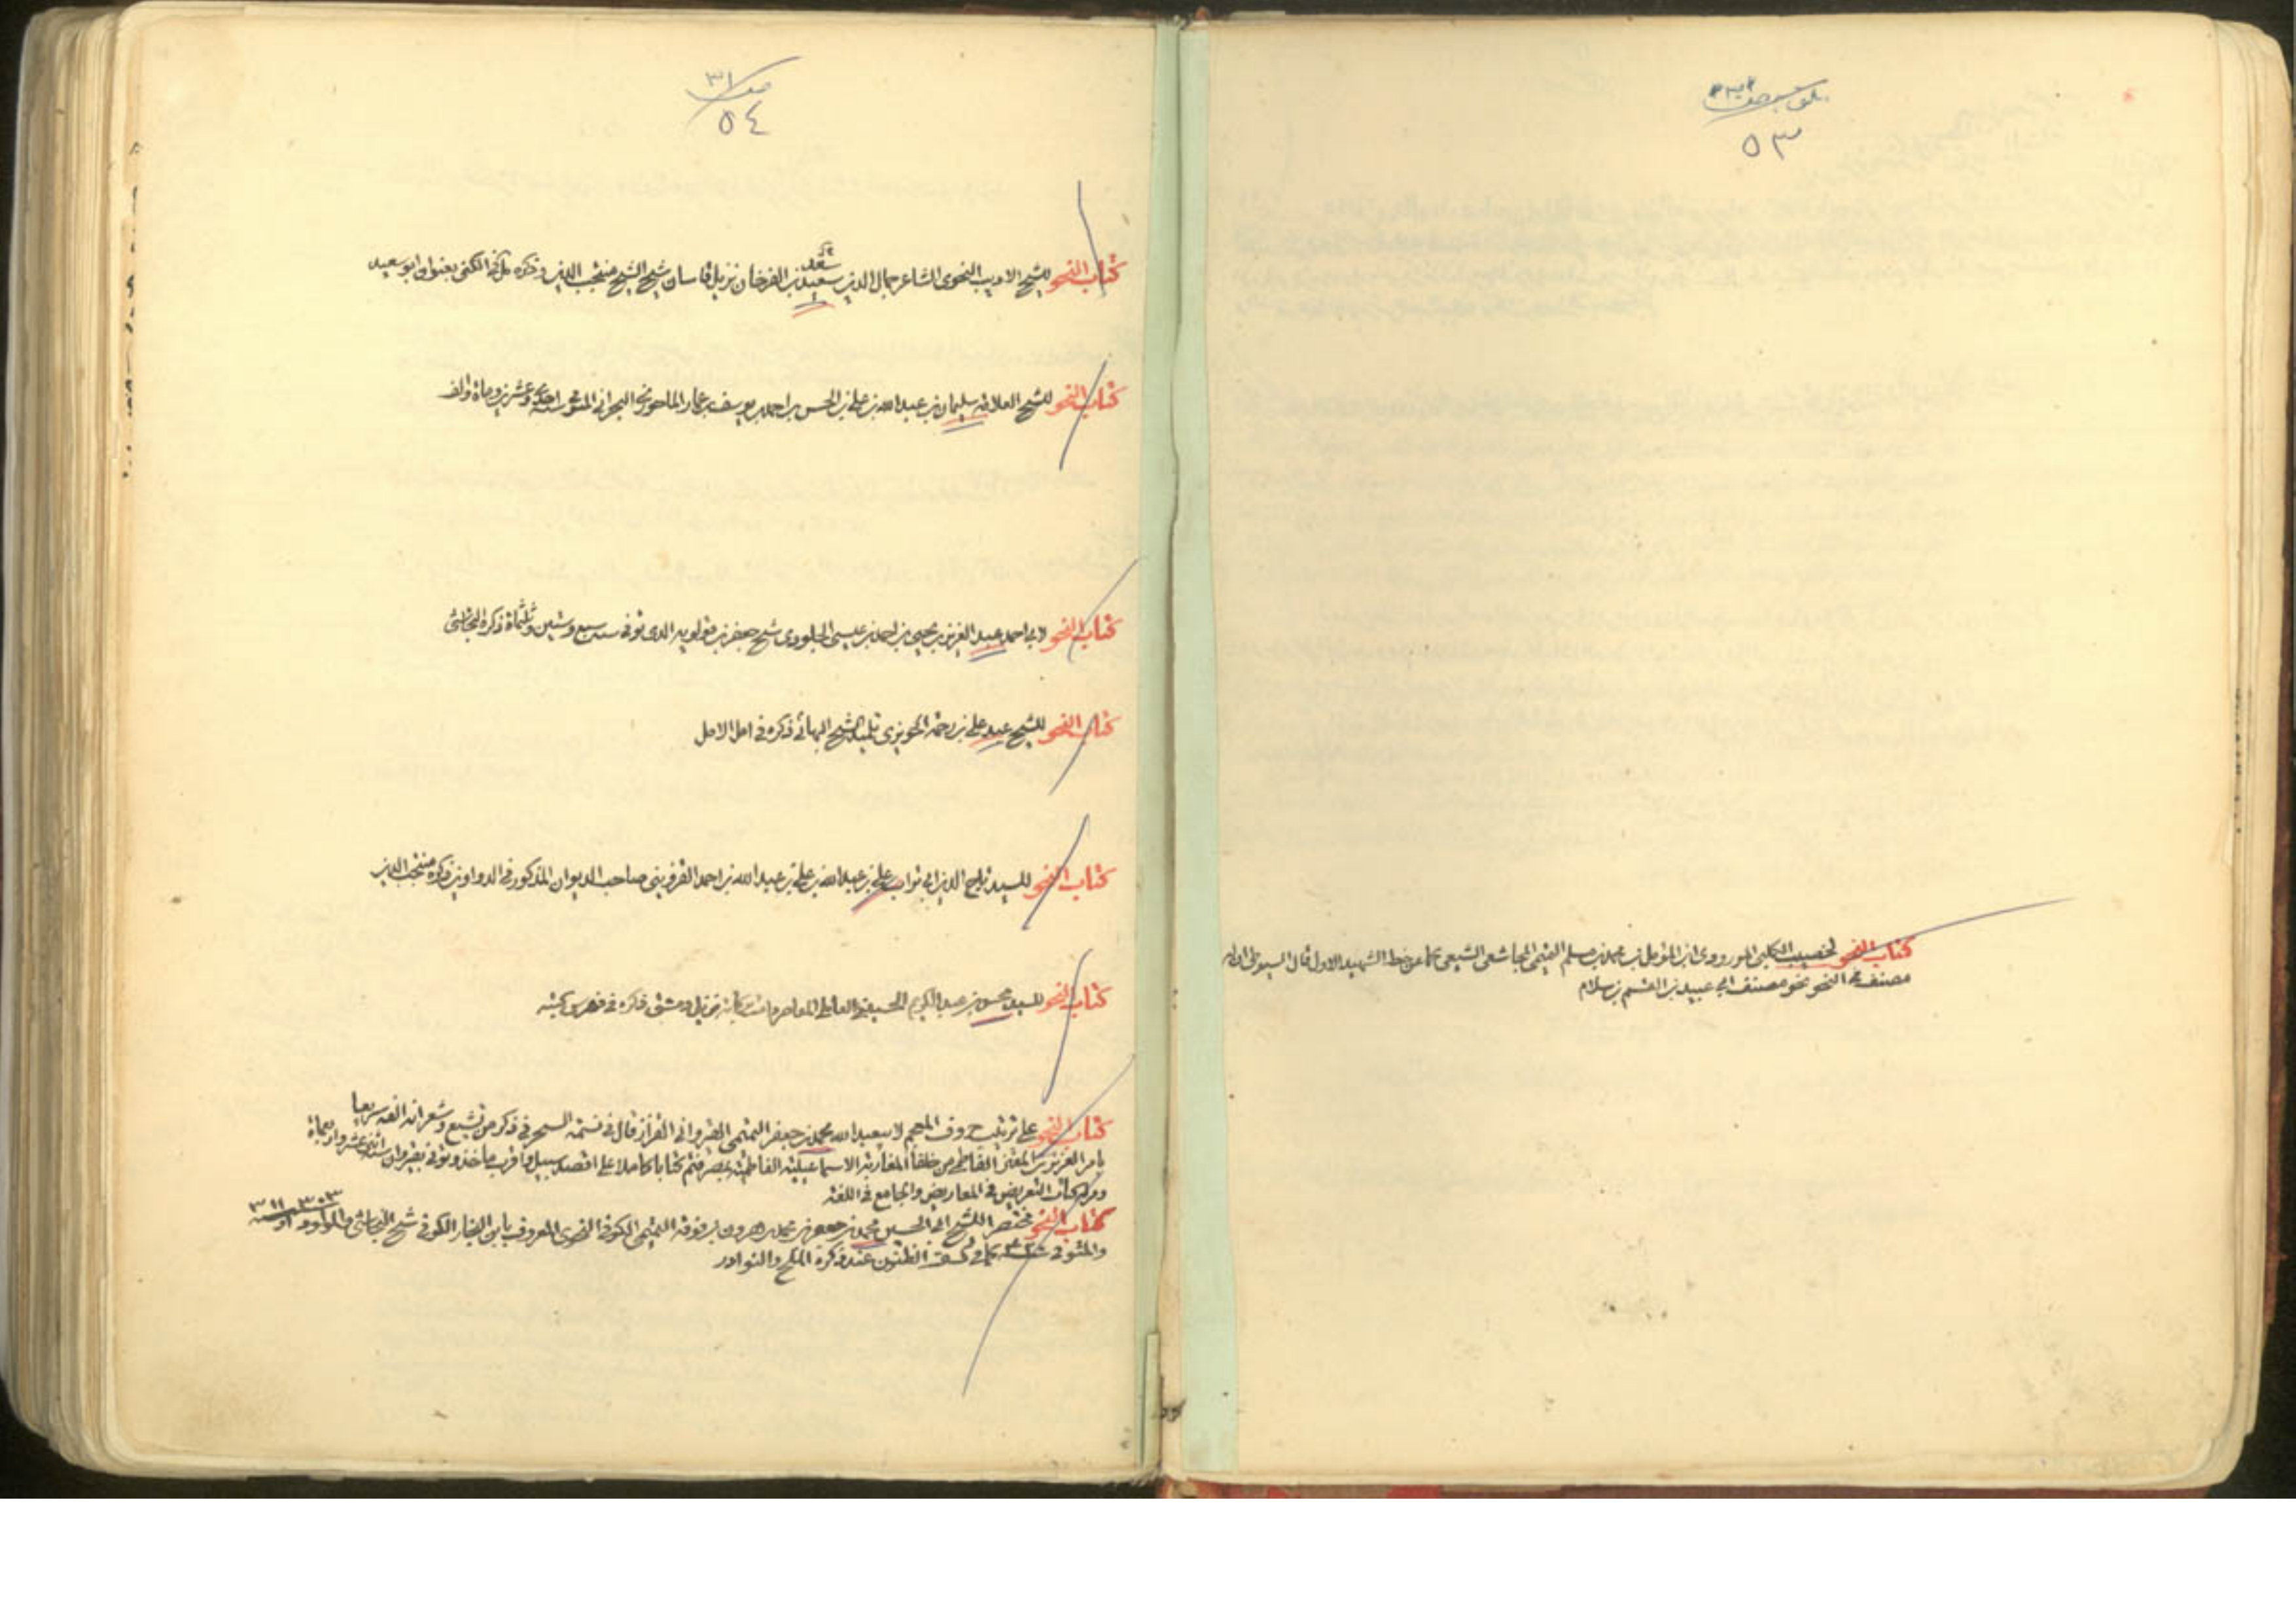 ٥٣
كتاب النحو لخصيب الكلبي المروروذي ابن المؤمل بن محمد بن مسلم التميمي المجاشعي الشيعي كما عن خط الشهيد الاول قال السيوطي ان له
مصنف في النحو نحو مصنف ابي عبيد بن القسم بن سلام
صف ٣١
٥٤
كتاب النحو للشيخ الاديب النحوي الشاعر جمال الدين سعيد بن الفرخان نزيل قاسان شيخ الشيخ منتجب الدين وذكره الكنى بعنوان ابو سعيد
سعد
كتاب النحو للشيخ العلامة سليمان بن عبد الله بن علي بن الحسن بن احمد بن يوسف بن عمار الماحوزي البحراني المتوفى سنة احدى وعشرين وماة والف
كتاب النحو لابي احمد عبد العزيز بن يحيى بن احمد بن عيسى الجلودي شيخ جعفر بن قولويه الذي توفي سنة سبع وستين وثلثماة ذكره النجاشي
كتاب النحو للشيخ عبد علي بن رحمة الحويزي تلميذ الشيخ البهائي ذكره في امل الامل
كتاب النحو للسيد تاج الدين ابي تراب علي بن عبد الله بن علي بن عبد الله بن احمد القزويني صاحب الديوان المذكور في الدواوين ذكره منتجب الدين
كتاب النحو للسيد محسن بن عبد الكريم الحسيني العاملي المعاصر نزيل دمشق ذكره في فهرس كتبه
كتاب النحو على ترتيب حروف المعجم لابيعبد الله محمد بن جعفر التميمي القيرواني القزاز قال في نسمة السحر في ذكر من تشيع وشعر انه الفه سريعا
بامر العزيز بن المعز الفاطمي من خلفا المغاربة الاسماعيلية الفاطمية بمصر فتم كتابا كاملا على اقصد سبيل واقرب ماخذ وتوفي بقيروان سنة اثنى عشر واربعماة
ومر له كتاب التعريض في المعاريض والجامع في اللغة
كتاب النحو مختصر للشيخ ابي الحسين محمد بن جعفر بن محمد بن هرون بن فوقة التميمي الكوفي النحوي المعروف بابن النجار الكوفي شيخ النجاشي والمولود ٣٠٣ او ٣١١
والمتوفى كما في كشف الظنون عند ذكره الملح والنوادر